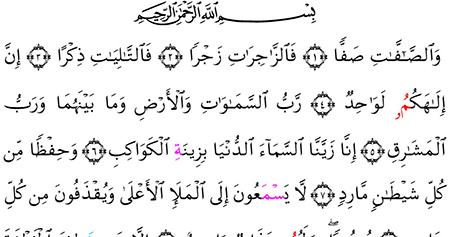 بِسْمِ اللَّهِ الرَّحْمَٰنِ الرَّحِيمِ
وَالصَّـٰٓفَّـٰتِ صَفًّا ﴿١﴾ فَالزَّٰجِرَٰتِ زَجْرًا ﴿٢﴾ فَالتَّـٰلِيَـٰتِ ذِكْرًا ﴿٣﴾ إِنَّ
إِلَـٰهَكُمُۥ لَوَٰحِدٌ ﴿٤﴾ رَّبُّ السَّمَـٰوَٰتِ وَالْأَرْضِ وَمَا بَيْنَهُمَا وَرَبُّ
الْمَشَـٰرِقِ ﴿٥﴾ إِنَّا زَيَّنَّا السَّمَآءَ الدُّنْيَا بِزِينَةِ الْكَوَاكِبِ ﴿٦﴾ وَحِفْظًا مِّن
كُلِّ شَيْطَـٰنٍ مَّارِدٍ ﴿٧﴾ لَّا يَسْمَعُونَ إِلَى الْمَلَإِ الْأَعْلَىٰ وَيُقْذَفُونَ مِن كُلِّ